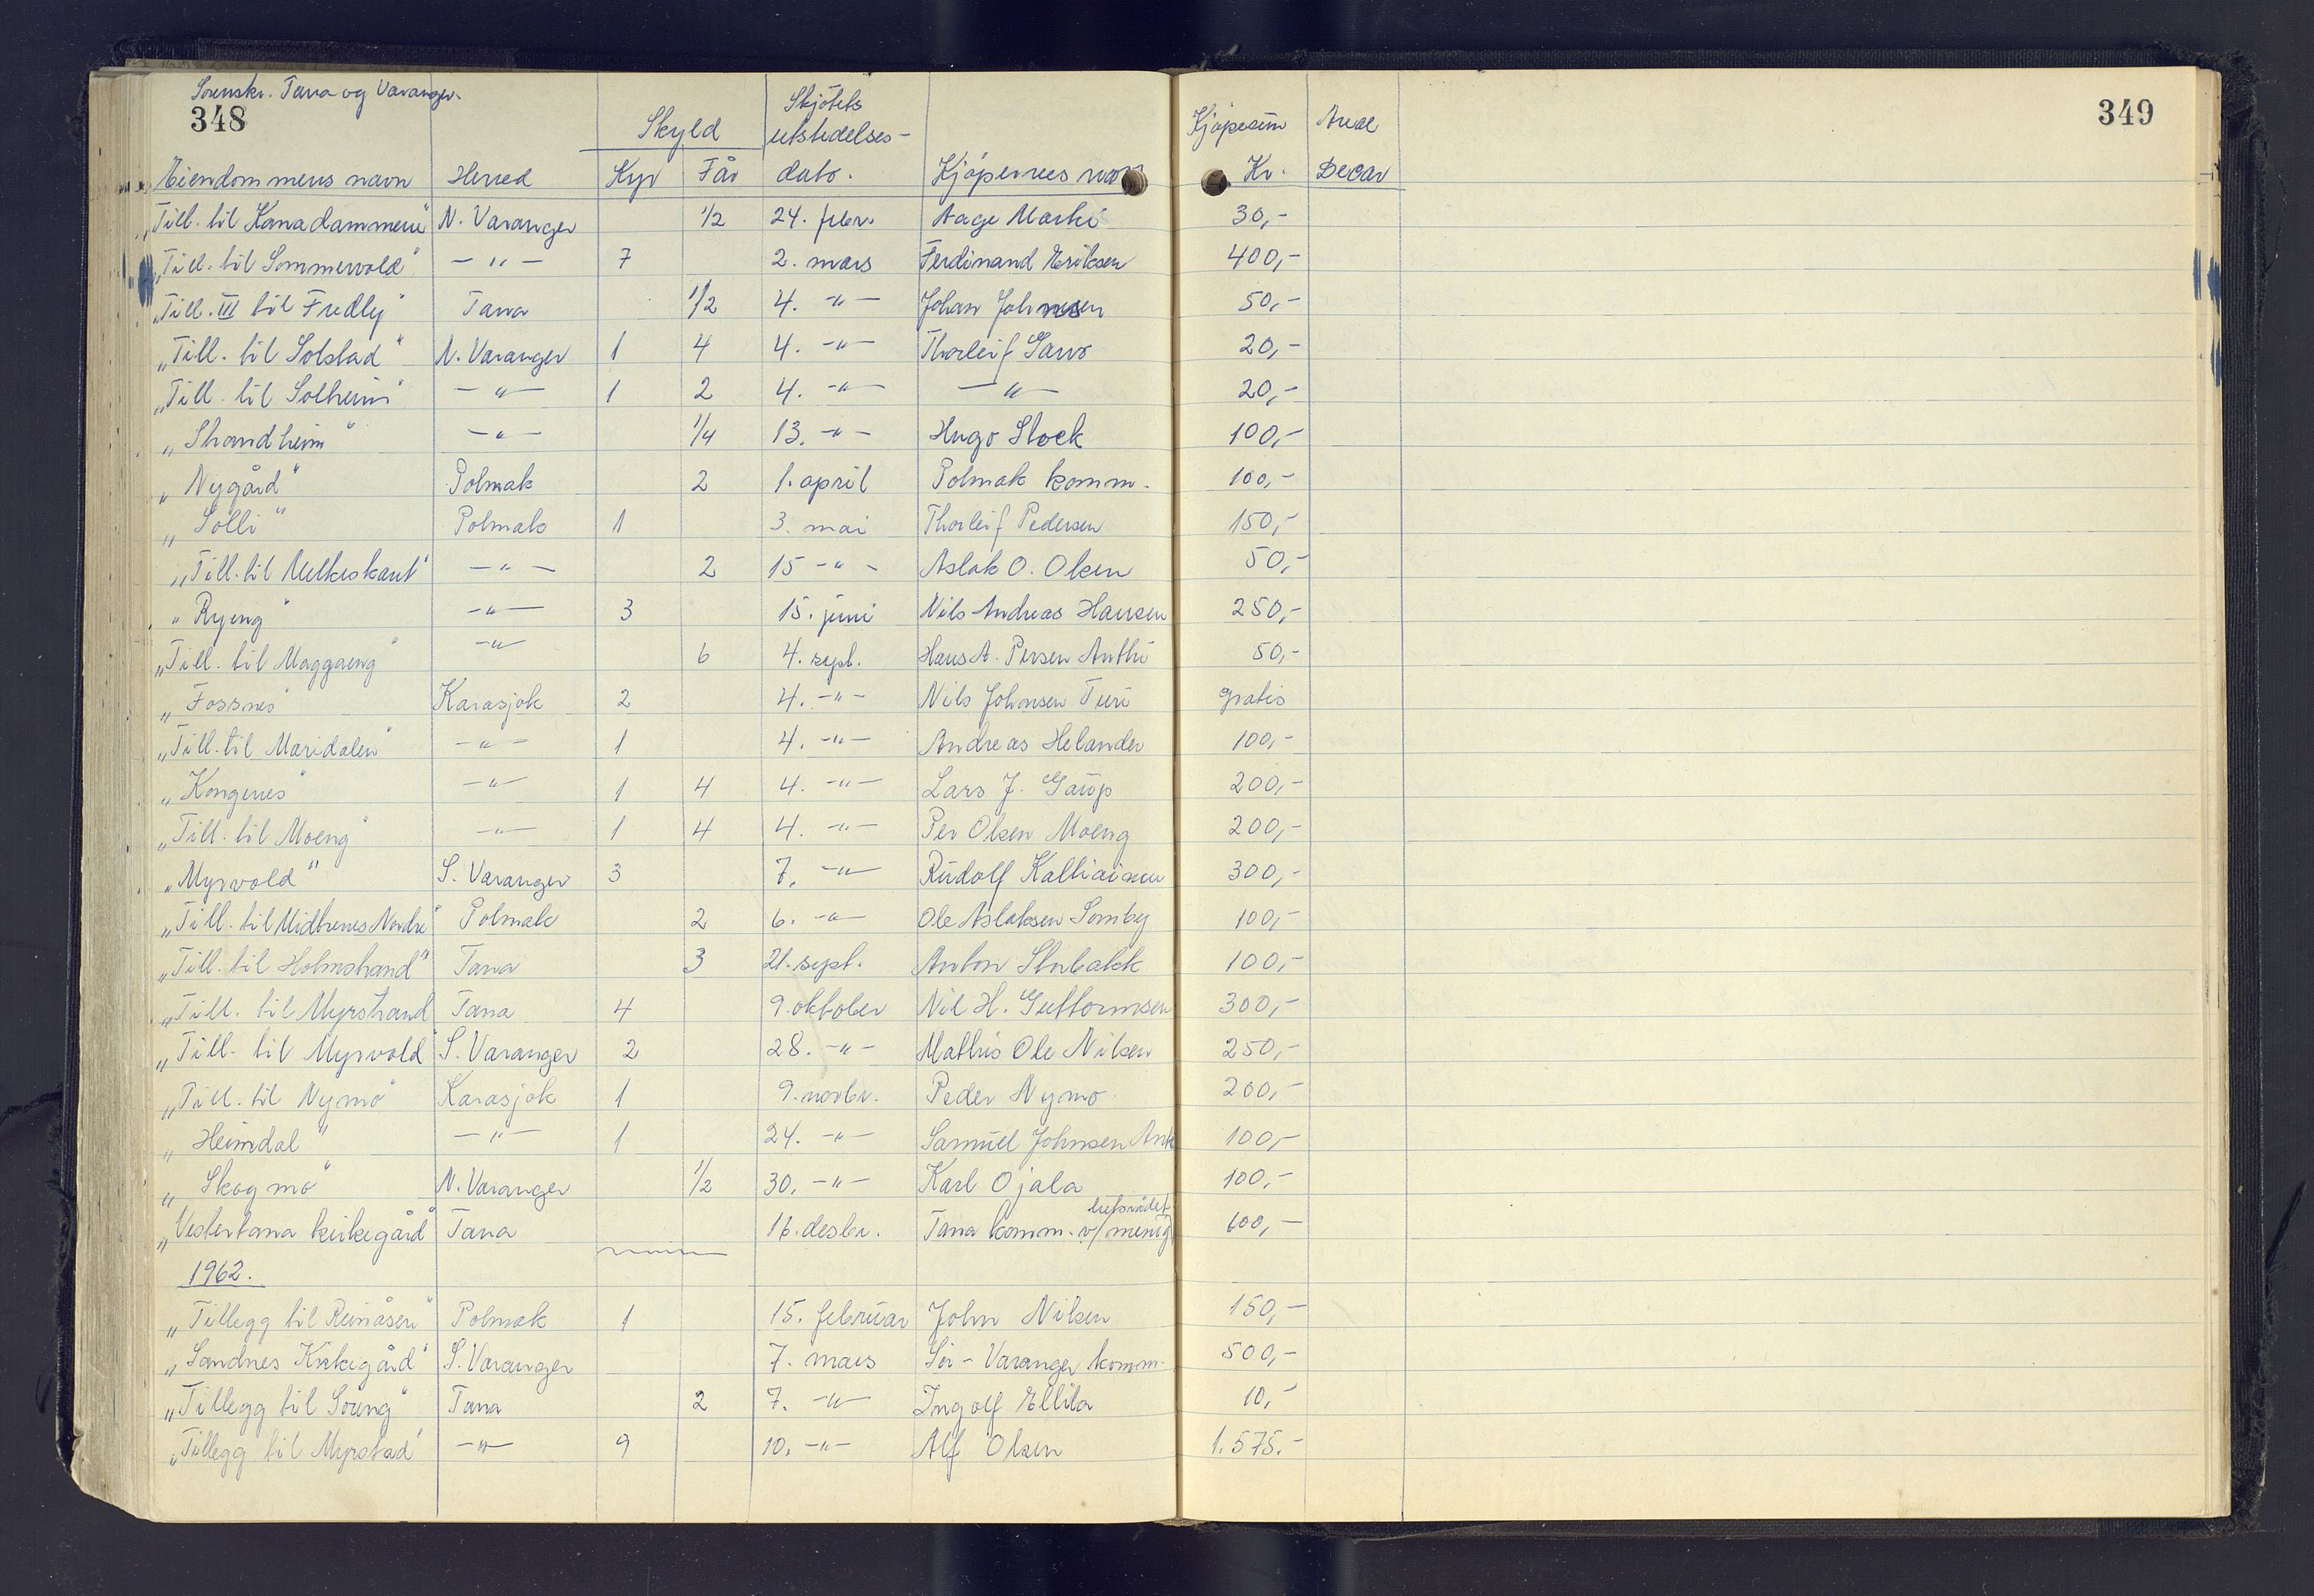 Sorenskr. Tana og Varanger.
348 349
Skjötets Kjøpesum Areal
Skyld utstedelses-
Eiendommens navn Herred Kyr Får dato. Kjöperens navn Kr. Dekar
„Till. til Kanadammen“ N. Varanger 1/2 24. febr. Aage Marki 30,-
„Till. til Sommervold“ -"- 7 2. mars Ferdinand Eriksen 400,-
„Till. III til Fredly“ Tana 1/2 4. -"- Johan Johnsen 50,-
„Till. til Solstad“ N. Varanger 1 4 4. -"- Thorleif Savo 20,-
„Till. til Solheim“ -"- 1 2 4. -"- -"- 20,-
„Strandheim“ -"- 1/4 13. -"- Hugo Stock 100,-
„Nygård“ Polmak 2 1. april Polmak komm. 100,-
„Solli“ Polmak 1 3. mai Thorleif Pedersen 150,-
„Till. til -"- 2 15 -"- Aslak O. Olsen 50,-
„Ryeng“ -"- 3 15. juni Nils Andreas Hansen 250,-
„Till. til Maggaeng“ -"- 6 4. sept. Hans A. Persen Anthi 50,-
„Fossnes“ Karasjok 2 4. -"- Nils Johnsen Turi gratis
„Till. til Maridalen“ -"- 1 4. -"- Andreas Helander 100,-
„Kongenes“ -"- 1 4 4. -"- Lars J. Gaup 200,-
„Till. til Moeng“ -"- 1 4 4. -"- Per Olsen Moeng 200,-
„Myrvold“ S. Varanger 3 7. -"- Rudolf Kalliainen 300,-
„Till. til Nordre“ Polmak 2 6. -"- Ole Aslaksen Somby 100,-
„Till. til Holmstrand“ Tana 3 21. sept. Anton Storbakk 100,-
„Till. til Myrstrand“ Tana 4 9. oktober Nil H. Guttormsen 300,-
„Till. til Myrvold“ S. Varanger 2 28. -"- Mathis Ole Nilsen 250,-
„Till. til Nymo“ Karasjok 1 9. novbr. Peder Nymo 200,-
„Heimdal“ -"- 1 24. -"- Samuel Johnsen Anti 100,-
„Skogmo“ N. Varanger 1/2 30. -"- Karl Ojala 100,-
„Vestertana kirkegård“ Tana 16. desbr. Tana komm. v/menighetsrådet 100,-
1962.
„Tillegg til Reinåsen“ Polmak 1 15. februar John Nilsen 150,-
„Sandnes Kirkegård“ S. Varanger 7. mars Sör-Varanger komm. 500,-
„Tillegg til Soeng“ Tana 2 7. -"- Ingolf Ellila 10,-
„Tillegg til Myrstad“ -"- 9 10. -"- Alf Olsen 1.575.-